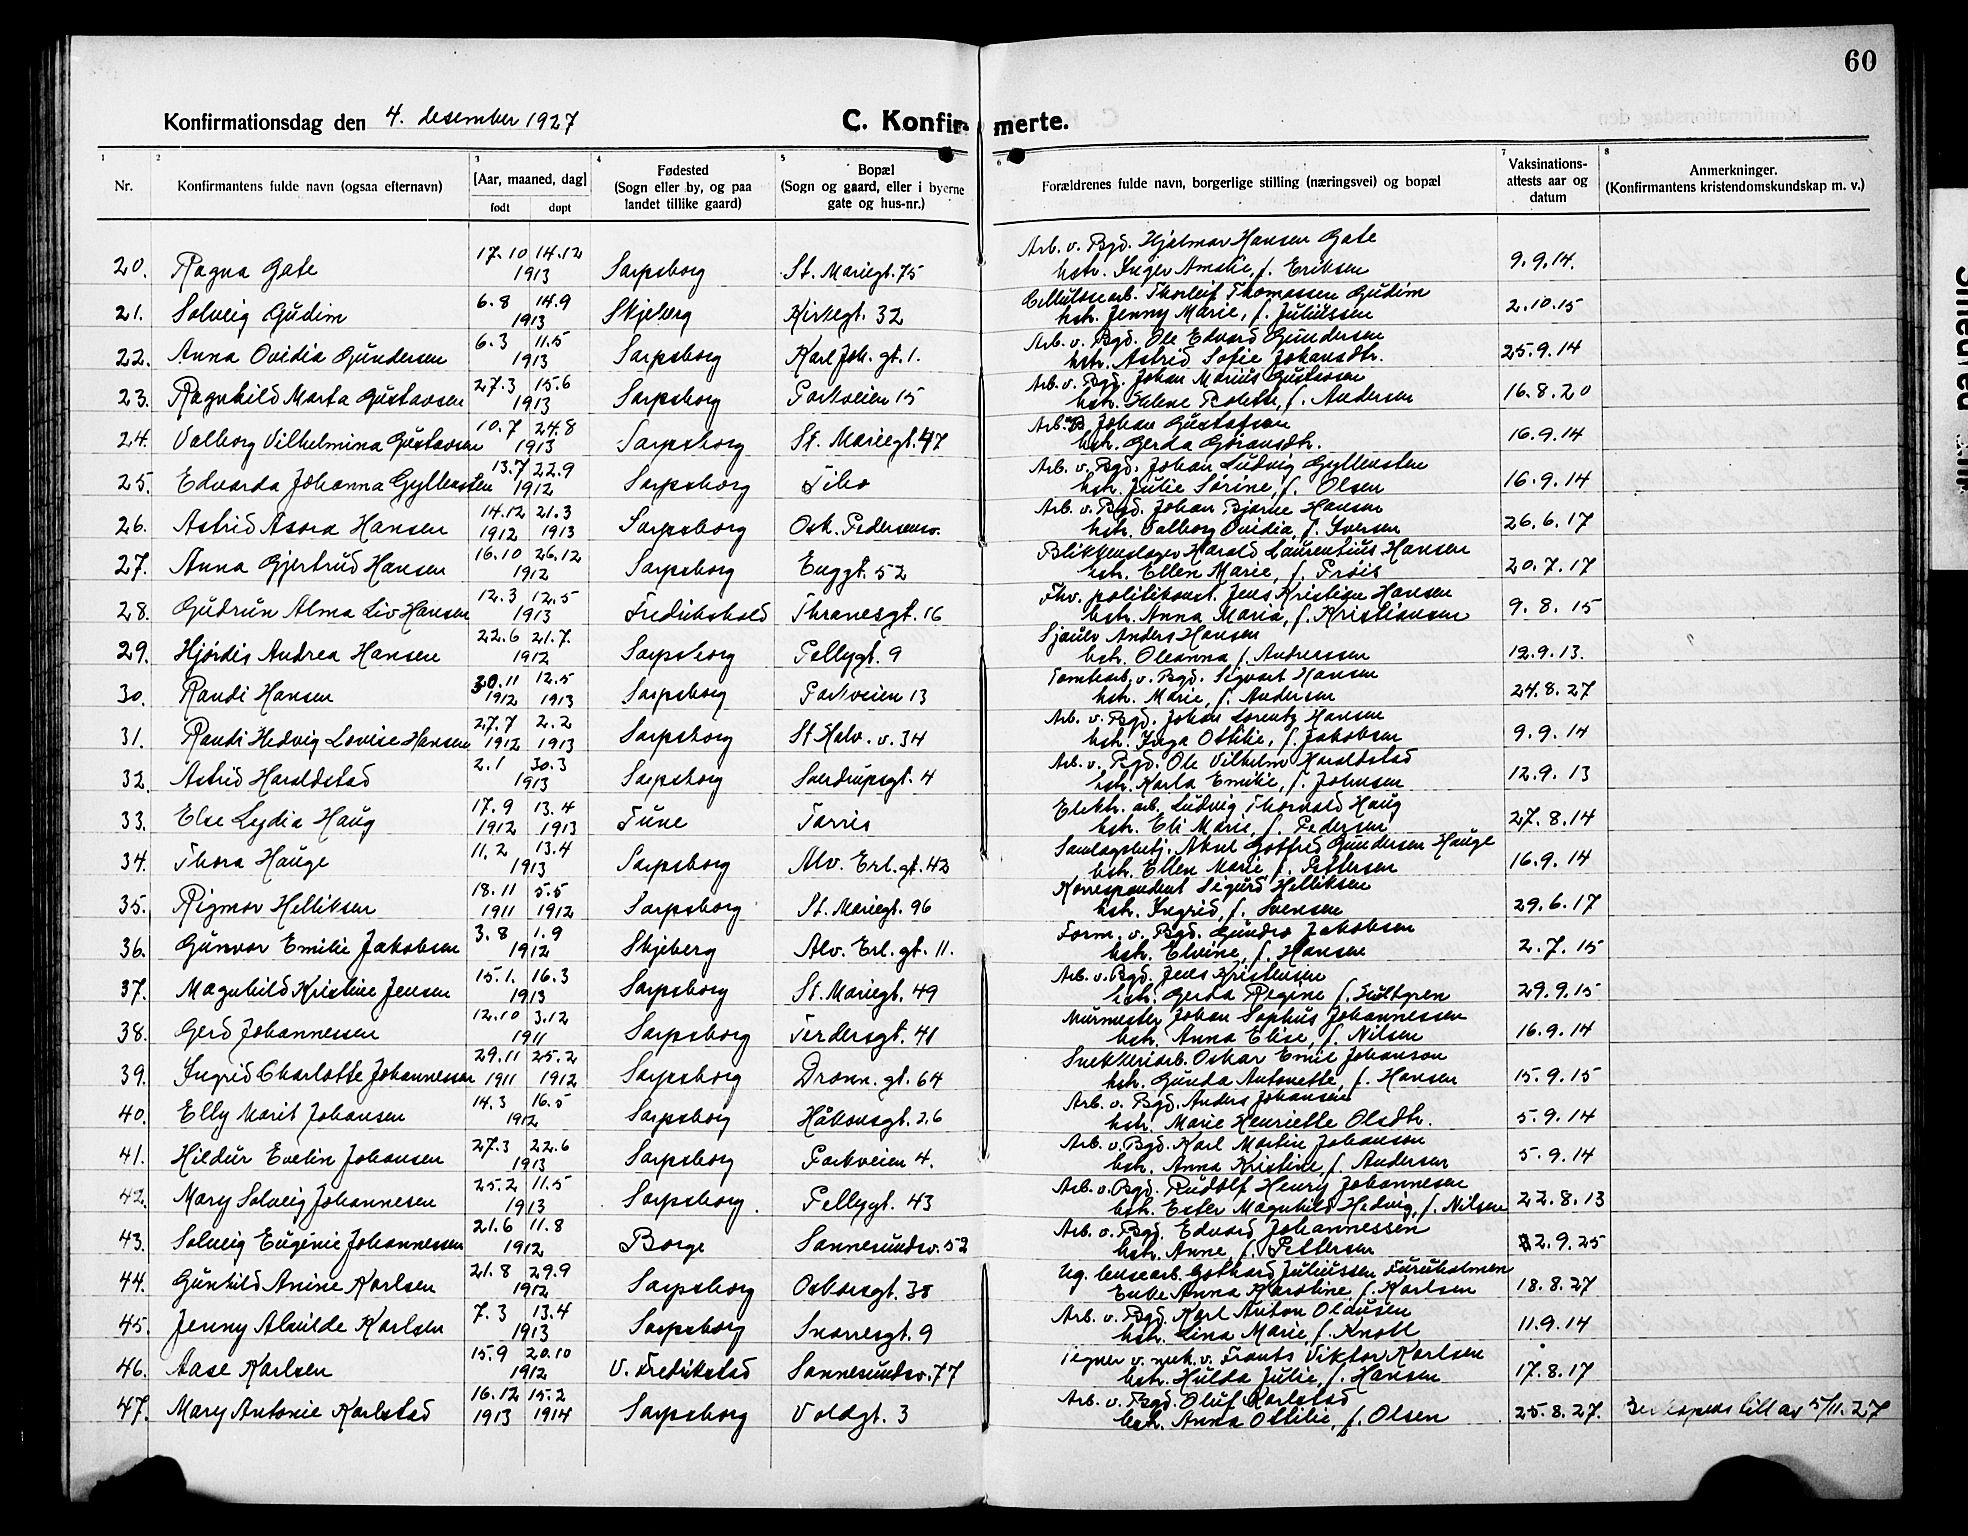 60
Konfirmationsdag den 4. desember 1927 C. Konfirmerte.
1 2 3 4 5 6 7 8
Nr. Konfirmantens fulde navn (ogsaa efternavn) [Aar, maaned, dag] født døpt Fødested (Sogn eller by, og paa landet tillike gaard) Bopæl (Sogn og gaard, eller i byerne gate og hus-nr.) Forældrenes fulde navn, borgerlige stilling (næringsvei) og bopæl Vaksinations-attests aar og datum Anmerkninger. (Konfirmantens kristendomskundskap m. v.)
20. Ragna Gate 17.10 14.12 1913 Sarpsborg St. Mariegt. 75 Arb. v. Bgd. Hjalmar Hansen Gate
hstr. Inger Amalie, f. Eriksen 9.9.14.
21. Solveig Gudim 6.8 14.9 1913 Skjeberg Kirkegt. 32 Cellulosearb. Thorleif Thomassen Gudim
hstr. Jenny Marie, f. Juliussen 2.10.15
22. Anna Ovidia Gundersen 6.3 11.5 1913 Sarpsborg Karl Joh. gt. 1. Arb. v. Bgd. Ole Edvard Gundersen
hstr. Astrid Sofie Johansdtr. 25.9.14
23. Ragnhild Marta Gustavsen 27.3 15.6 1913 Sarpsborg Parkveien 15 Arb. v. Bgd. Johan Marius Gustavsen
hstr. Helene Rolette, f. Andersen 16.8.20
24. Valborg Vilhelmina Gustavsen 10.7 24.8 1913 Sarpsborg St. Mariegt. 47 Arb. Johan Gustafson
hstr. Gerda Göransdtr. 16.9.14
25. Edvarda Johanna Gyllensten 13.7 22.9 1912 Sarpsborg Tibo Arb. v. Bgd. Johan Ludvig Gyllensten
hstr. Julie Sørine, f. Olsen 16.9.14
26. Astrid Asora Hansen 14.12 1912 21.3 1913 Sarpsborg Osk. Pedersensv. Arb. v. Bgd. Johan Bjarne Hansen
hstr. Valborg Ovidia, f. Iversen 26.6.17
27. Anna Gjertrud Hansen 16.10 26.12 1912 Sarpsborg Enggt. 52 Blikkenslager Harald Laurentius Hansen
hstr. Ellen Marie, f. Prøis 20.7.17
28. Gudrun Alma Liv Hansen 12.3 12.5 1913 Fredrikshald Thranesgt. 16 Fhv. politikonst. Jens Kristian Hansen
hstr. Anna Maria, f. Kristiansen 9.8.15
29. Hjørdis Andrea Hansen 22.6 21.7. 1912 Sarpsborg Pellygt. 9 Sjauer Anders Hansen
hstr. Oleanna f. Andreassen 12.9.13.
30. Randi Hansen 30.11 1912 12.5 1913 Sarpsborg Parkveien 13 Tomtearb. v. Bgd. Sigvart Hansen
hstr. Marie, f. Andersen 24.8.27
31. Randi Hedvig Lovise Hansen 27.7 1912 2.2 1913 Sarpsborg St Halv. v. 34 Arb. v. Bgd. Johan Lorentz Hansen
hstr. Inga Ottilie, f. Jakobsen 9.9.14
32. Astrid Haraldstad 2.1 30.3 1913 Sarpsborg Sverdrupsgt. 4 Arb. v. Bgd. Ole Vilhelm Haraldstad
hstr. Karla Emilie, f. Johnsen 12.9.13
33. Else Lydia Haug 17.9 1912 13.4 1913 Tune Torris Elektr. arb. Ludvig Thorvald Haug
hstr. Eli Marie, f. Pedersen 27.8.14
34. Thora Hauge 11.2 13.4 1913 Sarpsborg Alv. Erl. gt. 42 Samlagsbetj. Aksel Gotfred Gundersen Hauge
hstr. Ellen Marie f. Pettersen 16.9.14
35. Rigmor Helliksen 18.11 1911 5.5 1912 Sarpsborg St. Mariegt. 96 Korrespondent Sigurd Helliksen
hstr. Ingrid, f. Svensen 29.6.17
36. Gunvor Emilie Jakobsen 3.8 1.9 1912 Skjeberg Alv. Erl. gt. 11. Form. v. Bgd. Gundro Jakobsen
hstr. Elvine, f. Hansen 2.7.15
37. Magnhild Kristine Jensen 15.1. 16.3 1913 Sarpsborg St. Mariegt. 49 Arb. v. Bgd. Jens Kristensen
hstr. Gerda Regine f. Hultgren 29.9.15
38. Gerd Johannessen 12.10 3.12 1911 Sarpsborg Terdersgt. 41 Murmester Johan Sophus Johannessen
hstr. Anna Elise, f. Nilsen 16.9.14
39. Ingrid Charlotte Johannessen 29.11 1911 25.2 1912 Sarpsborg Dronn. gt. 64 Snekkeriarb. Oskar Emil Johanson
hstr. Gunda Antonette, f. Hansen 15.9.15
40. Elly Marit Johansen 14.3 16.5 1912 Sarpsborg Håkonsgt. 26 Arb. v. Bgd. Anders Johansen
hstr. Marie Henriette Olsdtr. 5.9.14
41. Hildur Evelin Johansen 27.3 22.6 1913 Sarpsborg Parkveien 4. Arb. v. Bgd. Karl Martin Johanson
hstr. Anna Kristine, f. Andersen 5.9.14
42. Mary Solveig Johannesen 25.2 11.5 1913 Sarpsborg Pellygt. 43 Arb. v. Bgd. Rudolf Henry Johannesen
hstr. Ester Magnhild Hedvig, f. Nilsen 22.8.13
43. Solveig Eugenie Johannessen 21.6 11.8 1912 Borge Sannesundsv. 52 Arb. v. Bgd. Edvard Johannessen
hstr. Anne, f. Pettersen 22.9.25
44. Gunhild Anine Karlsen 21.8 29.9 1912 Sarpsborg Oskarsgt. 38 Ug. Gothard Juliussen Furuholmen
Enke Anna Karoline f. Karlsen 18.8.27
45. Jenny Alvilde Karlsen 7.3 13.4 1913 Sarpsborg Snorresgt. 9 Arb. v. Bgd. Karl Anton Olausen
hstr. Lina Marie, f. Knoll 11.9.14
46. Aase Karlsen 15.9 20.10 1912 V. Fredrikstad Sannesundsv. 77 Tegner v. mek. v. Frants Viktor Karlsen
hstr. Hulda Julie, f. Hansen 17.8.17
47. Mary Antonie Karlstad 16.12 1913 15.2 1914 Sarpsborg Voldgt. 3 Arb. v. Bgd. Oluf Karlstad
hstr. Anna Ottilie, f. Olsen 25.8.27. Biskopens till av 5/11.27